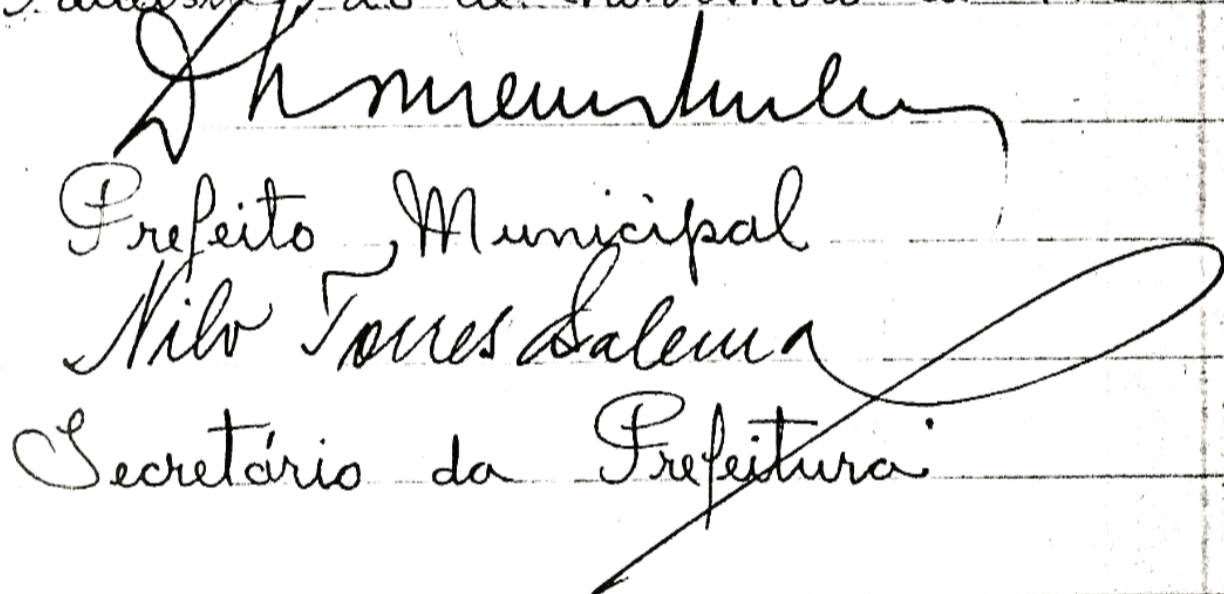 de novembro
Prefeito Municipal
Nilo Torres Salema
Secretário da Prefeitura